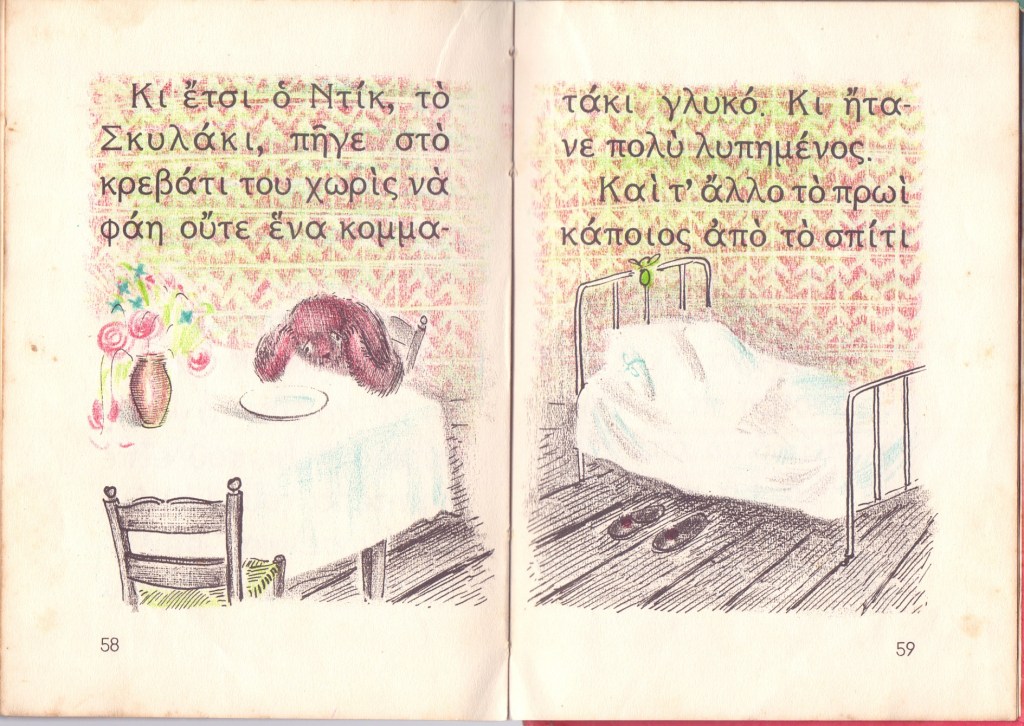 Κι ἔτσι ὁ Ντίκ, τὸ
Σκυλάκι, πῆγε στὸ
κρεβάτι του χωρὶς νὰ
φάη οὔτε ἕνα κομμα-
58
τάκι γλυκό. Κι ἤτα-
νε πολὺ λυπημένος.
Καὶ τ’ ἄλλο τὸ πρωὶ
κάποιος ἀπὸ τὸ σπίτι
59